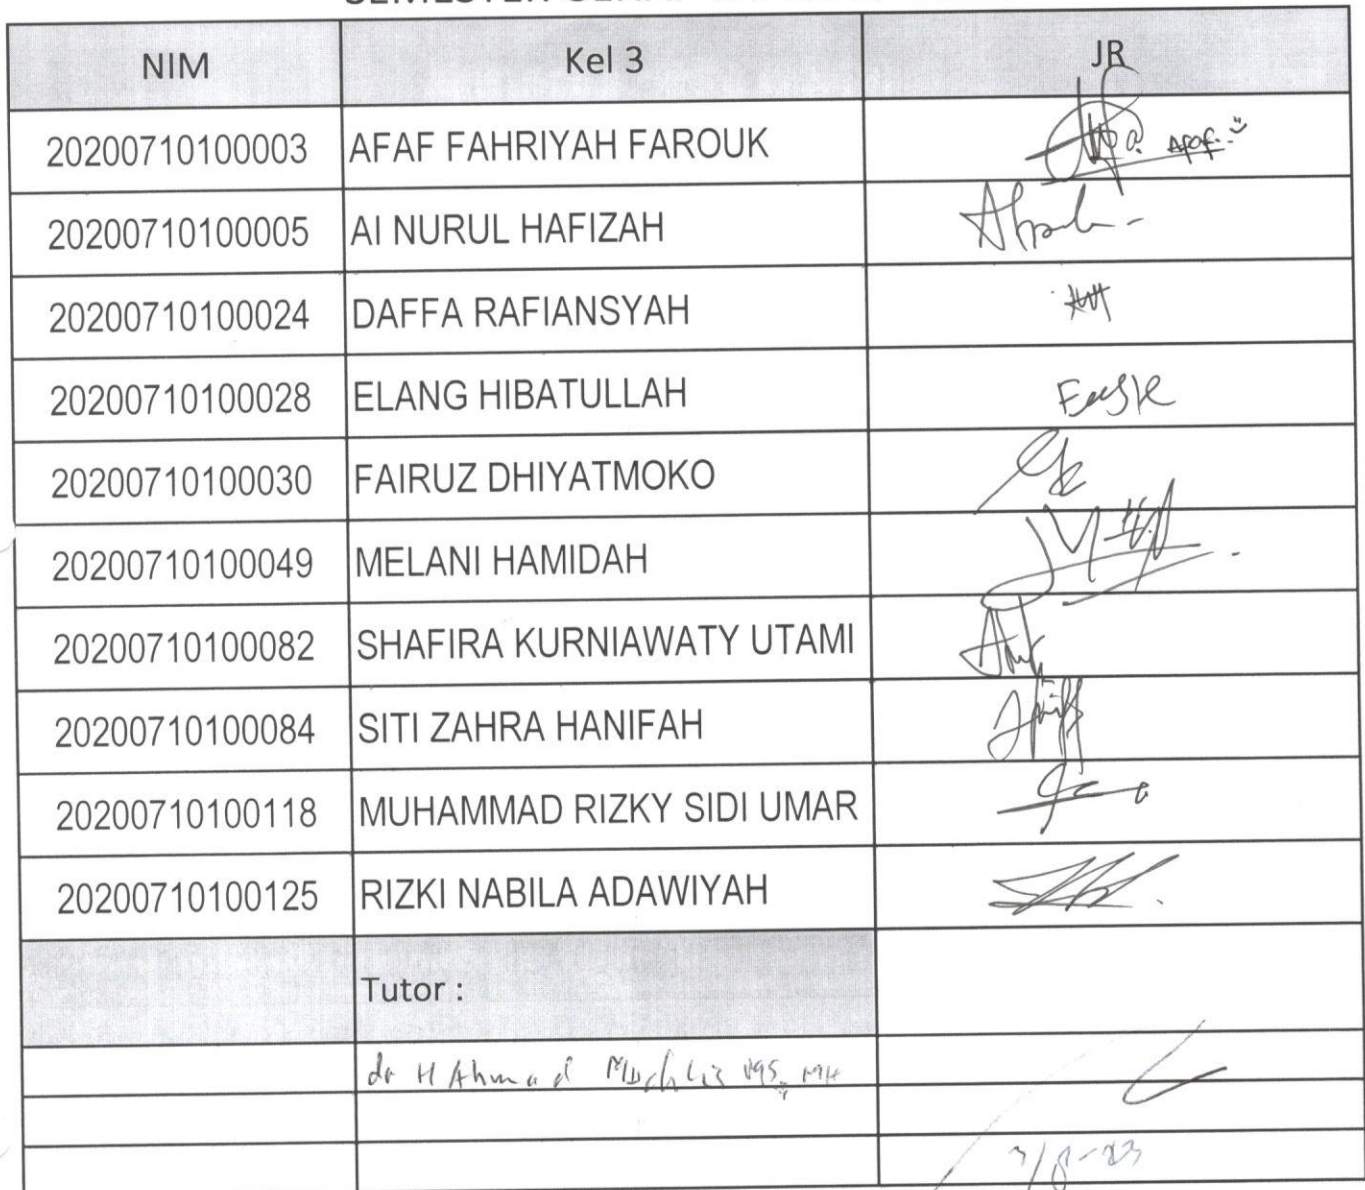 NIM Kel 3 JR
20200710100003 AFAF FAHRIYAH FAROUK Afaf
20200710100005 AI NURUL HAFIZAH
20200710100024 DAFFA RAFIANSYAH
20200710100028 ELANG HIBATULLAH
20200710100030 FAIRUZ DHIYATMOKO
20200710100049 MELANI HAMIDAH
20200710100082 SHAFIRA KURNIAWATY UTAMI
20200710100084 SITI ZAHRA HANIFAH
20200710100118 MUHAMMAD RIZKY SIDI UMAR
20200710100125 RIZKI NABILA ADAWIYAH
Tutor :
dr H Ahmad MH